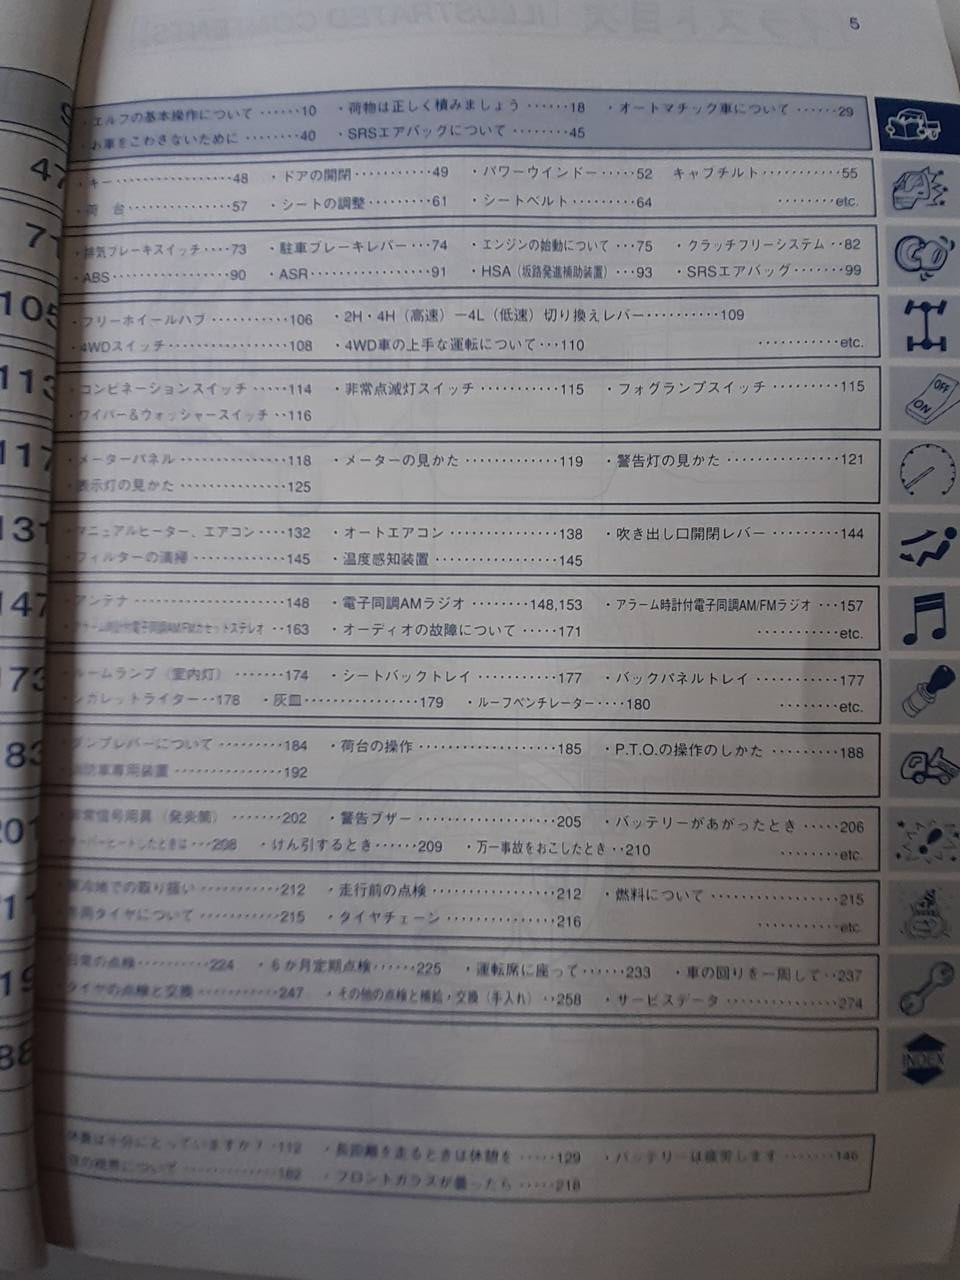 5
・エルフの基本操作について ······10 ・荷物は正しく積みましょう ······18 ・オートマチック車について ······29
・お車をこわさないために ········40 ・SRSエアバッグについて ········45
47
・キー·················48 ・ドアの開閉···········49 ・パワーウインドー·····52 キャブチルト···········55
・荷 台···············57 ・シートの調整·········61 ・シートベルト········64 ········etc.
・排気ブレーキスイッチ····73 ・駐車ブレーキレバー···74 ・エンジンの始動について ···75 ・クラッチフリーシステム ··82
・ABS·················90 ・ASR················91 ・HSA（坂路発進補助装置）···93 ・SRSエアバッグ·······99
105
・フリーホイールハブ ···········106 ・2H・4H（高速）ー4L（低速）切り換えレバー··········109
・4WDスイッチ·················108 ・4WD車の上手な運転について···110 ···········etc.
113
・コンビネーションスイッチ ·····114 ・非常点滅灯スイッチ ···········115 ・フォグランプスイッチ ·········115
・ワイパー＆ウォッシャースイッチ ··116
117
・メーターパネル ···············118 ・メーターの見かた ·············119 ・警告灯の見かた ···············121
・表示灯の見かた ···············125
131
・マニュアルヒーター、エアコン ····132 ・オートエアコン ···············138 ・吹き出し口開閉レバー ·········144
・フィルターの清掃 ·············145 ・温度感知装置 ················145
147
・アンテナ ····················148 ・電子同調AMラジオ ········148,153 ・アラーム時計付電子同調AM/FMラジオ ···157
・アラーム時計付電子同調AM/FMカセットステレオ ··163 ・オーディオの故障について ·····171 ···········etc.
173
・ルームランプ（室内灯）·······174 ・シートバックトレイ ···········177 ・バックパネルトレイ ···········177
・シガレットライター ··178 ・灰皿················179 ・ルーフベンチレーター····180 ········etc.
183
・ダンプレバーについて ·········184 ・荷台の操作 ··················185 ・P.T.O.の操作のしかた ·········188
・消防車専用装置 ···············192
201
・非常信号用具（発炎筒）·······202 ・警告ブザー ··················205 ・バッテリーがあがったとき ·····206
・オーバーヒートしたときは ···208 ・けん引するとき······209 ・万一事故をおこしたとき ··210 ········etc.
・寒冷地での取り扱い ···········212 ・走行前の点検 ················212 ・燃料について ················215
・冬用タイヤについて ···········215 ・タイヤチェーン ··············216 ···········etc.
・日常の点検··········224 ・6か月定期点検······225 ・運転席に座って······233 ・車の回りを一周して··237
・タイヤの点検と交換 ···········247 ・その他の点検と補給・交換（手入れ）··258 ・サービスデータ ···············274
INDEX
・休養は十分にとっていますか？·112 ・長距離を走るときは休憩を ·····129 ・バッテリーは疲労します ·······146
·············182 ・フロントガラスが曇ったら ·····218
OFF
ON